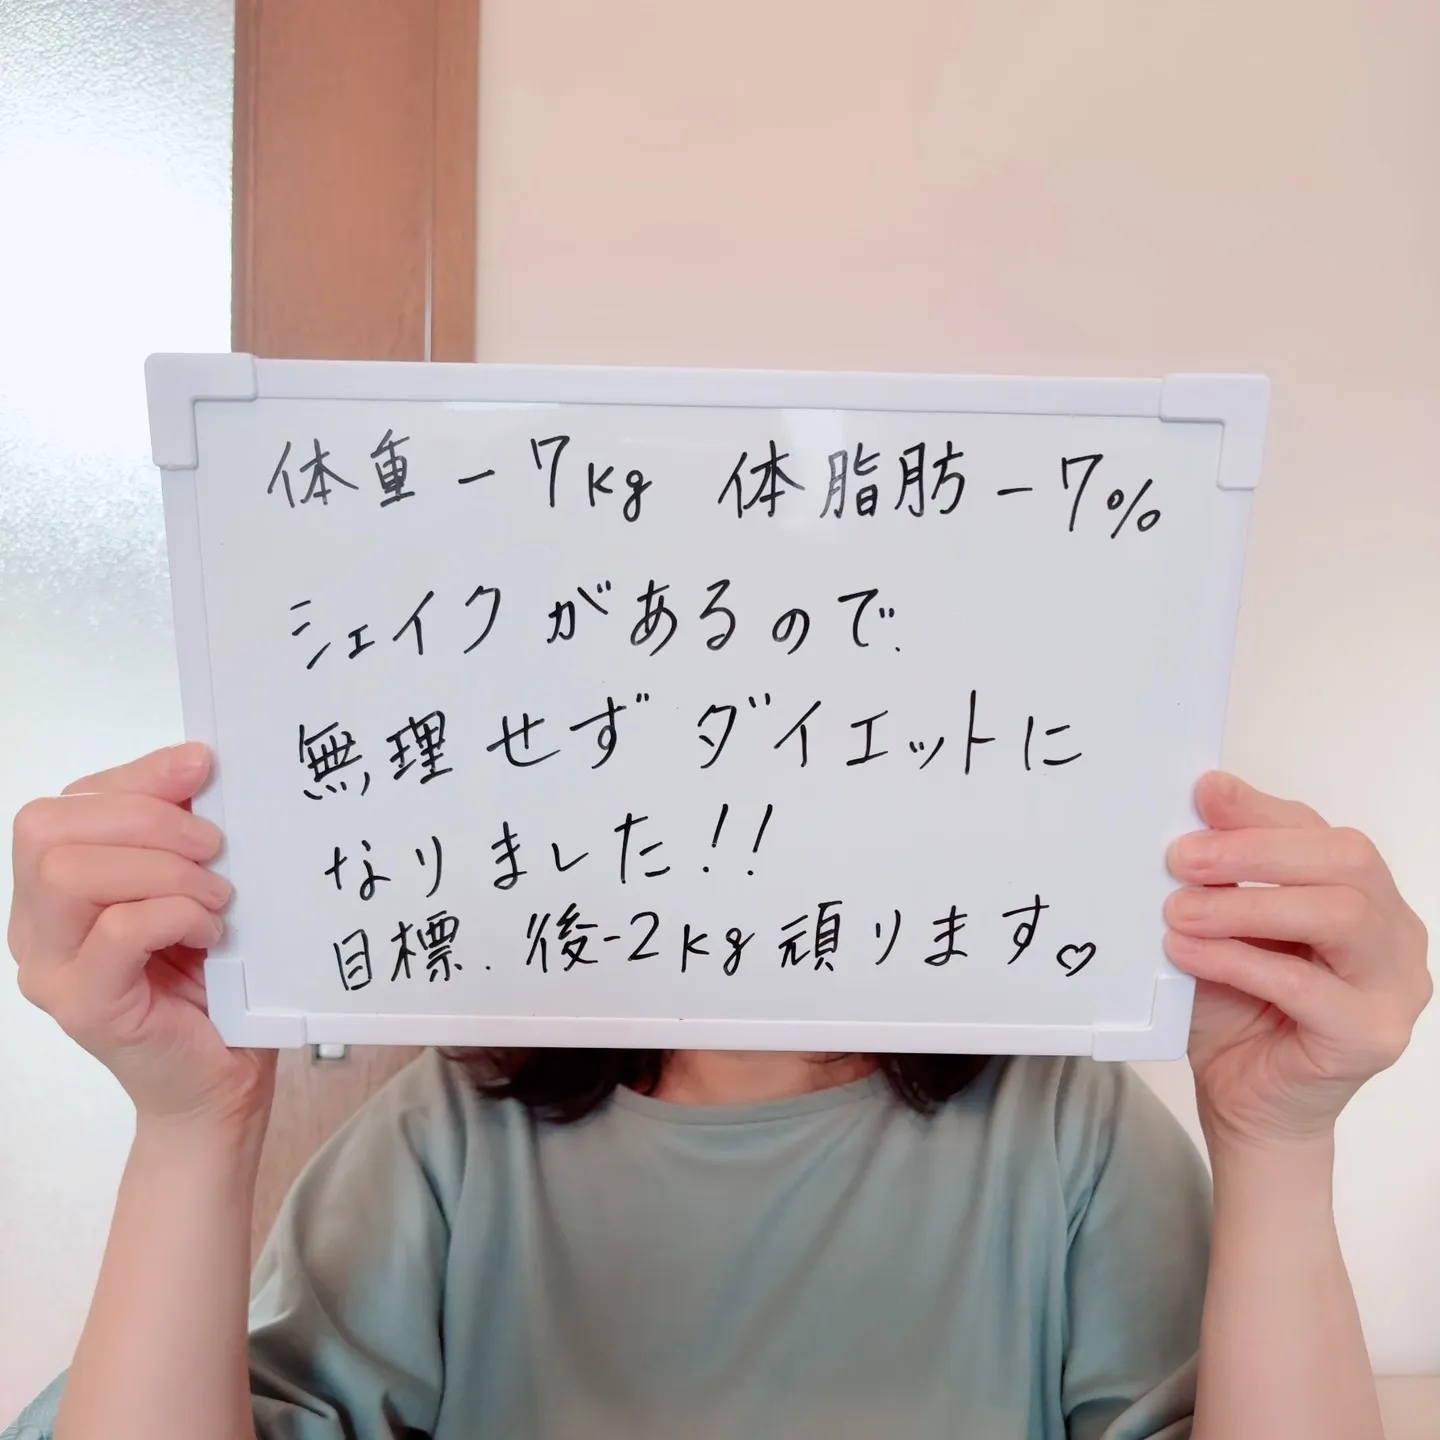 体重-7kg 体脂肪-7%
シェイクがあるので、
無理せずダイエットに
なりました!!
目標.後-2kg頑ります♡